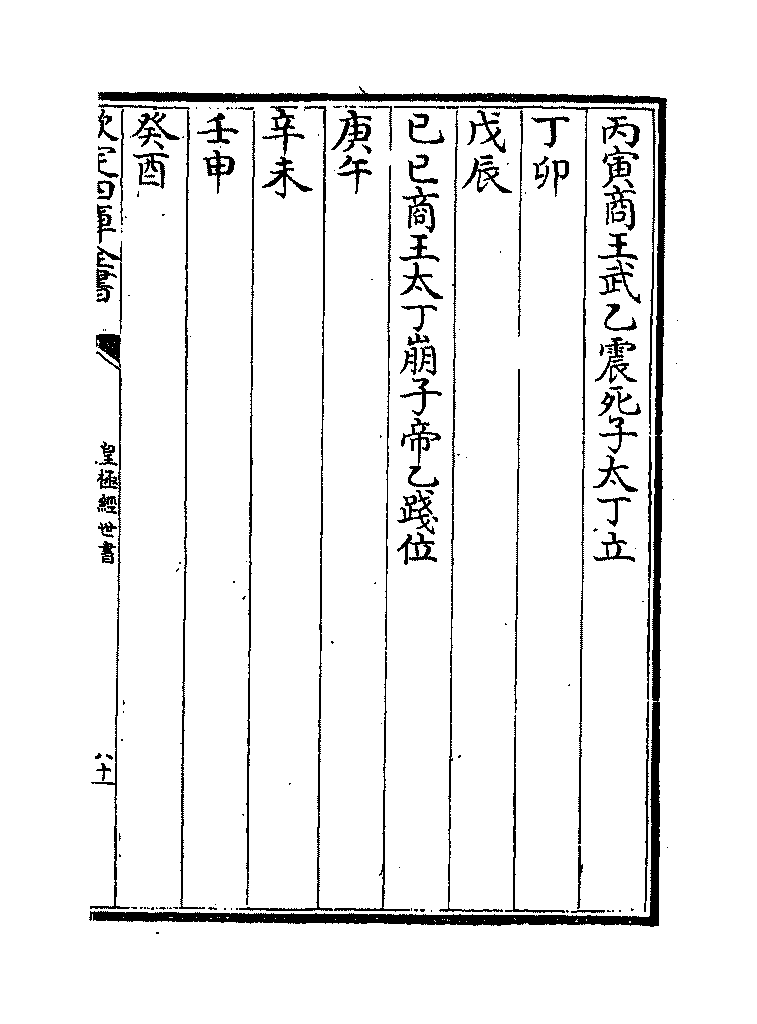 丙寅商王武乙震死子太丁立
丁卯
戊辰
己巳商王太丁崩子帝乙踐位
庚午
辛未
壬申
癸酉
欽定四庫全書
皇極經世書
八十